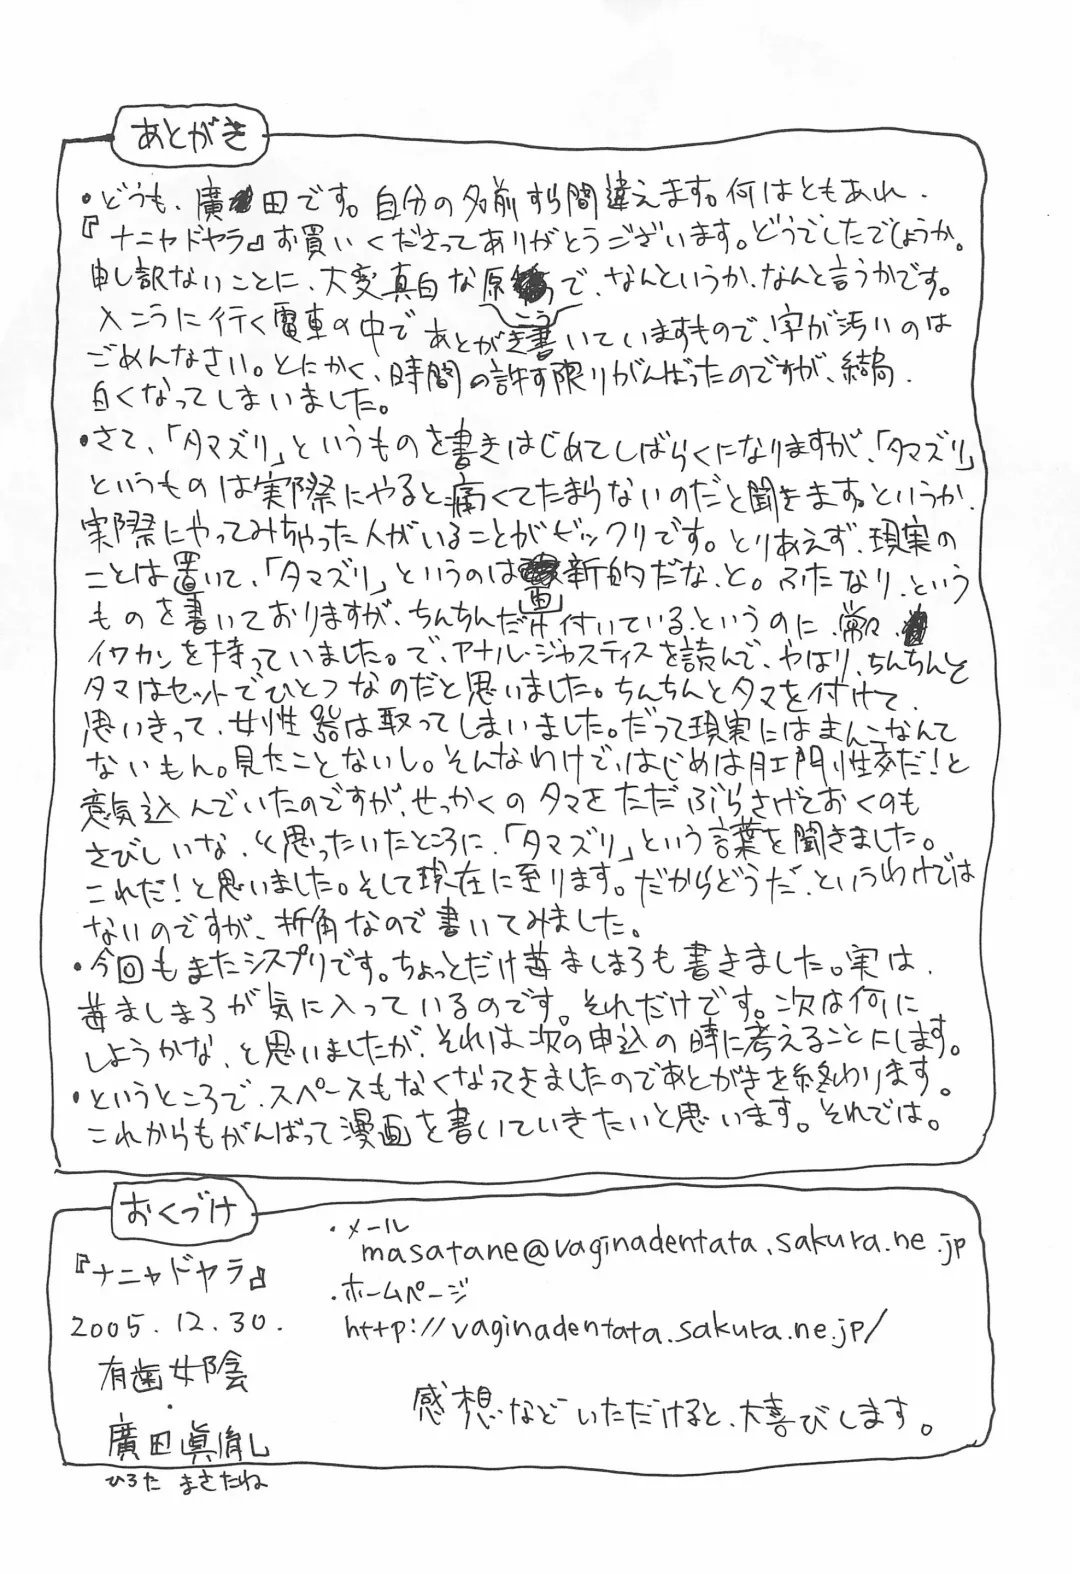 あとがき
・どうも、廣田です。自分の名前すら間違えます。何はともあれ、
『ナニャドヤラ』お買いくださってありがとうございます。どうでしたでしょうか。
申し訳ないことに、大変真白な原で、なんというか、なんと言うかです。
入こうに行く電車の中であとがき書いていますもので、字が汚いのは
こう
ごめんなさい。とにかく、時間の許す限りがんばったのですが、結局、
白くなってしまいました。
・さて、「タマズリ」というものを書きはじめてしばらくになりますが、「タマズリ」
というものは実際にやると痛くてたまらないのだと聞きます。というか、
実際にやってみちゃった人がいることがビックリです。とりあえず、現実の
ことは置いて、「タマズリ」というのは画新的だな、と。ふたなり、という
ものを書いておりますが、ちんちんだけ付いている、というのに、常々、
イワカンを持っていました。で、アナル・ジャスティスを読んで、やはり、ちんちんと
タマはセットでひとつなのだと思いました。ちんちんとタマを付けて、
思いきって、女性器は取ってしまいました。だって現実にはまんこなんて
ないもん。見たことないし。そんなわけで、はじめは肛門性交だ！と
意気込んでいたのですが、せっかくのタマをただぶらさげておくのも
さびしいな、と思ったいたところに、「タマズリ」という言葉を聞きました。
これだ！と思いました。そして現在に至ります。だからどうだ、というわけでは
ないのですが、折角なので書いてみました。
・今回もまたシスプリです。ちょっとだけ苺ましまろも書きました。実は、
苺ましまろが気に入っているのです。それだけです。次は何に
しようかな、と思いましたが、それは次の申込の時に考えることにします。
・というところで、スペースもなくなってきましたのであとがきを終わります。
これからもがんばって漫画を書いていきたいと思います。それでは。
おくづけ
『ナニャドヤラ』
2005.12.30.
有歯女陰
・
廣田眞胤
ひろた まさたね
・メール
masatane@vaginadentata.sakura.ne.jp
・ホームページ
http://vaginadentata.sakura.ne.jp/
感想などいただけると、大喜びします。